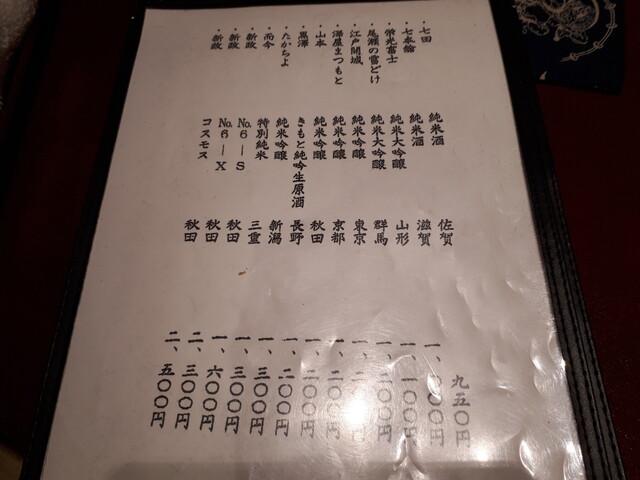 ・七田 純米酒 佐賀 九五〇円
・七本鎗 純米酒 滋賀 一、〇〇〇円
・栄光冨士 純米大吟醸 山形 一、一〇〇円
・尾瀬の雪どけ 純米大吟醸 群馬 一、二〇〇円
・江戸開城 純米吟醸 東京 一、二 円
・澤屋まつもと 純米吟醸 京都 一、二〇〇円
・山本 純米吟醸 秋田 一、二〇〇円
・黒澤 きもと純吟生原酒 長野 一、二〇〇円
・たかちよ 純米吟醸 新潟 一、三〇〇円
・而今 特別純米 三重 一、三〇〇円
・新政 No.6―S 秋田 一、六〇〇円
・新政 No.6―X 秋田 二、三〇〇円
・新政 コスモス 秋田 二、五〇〇円